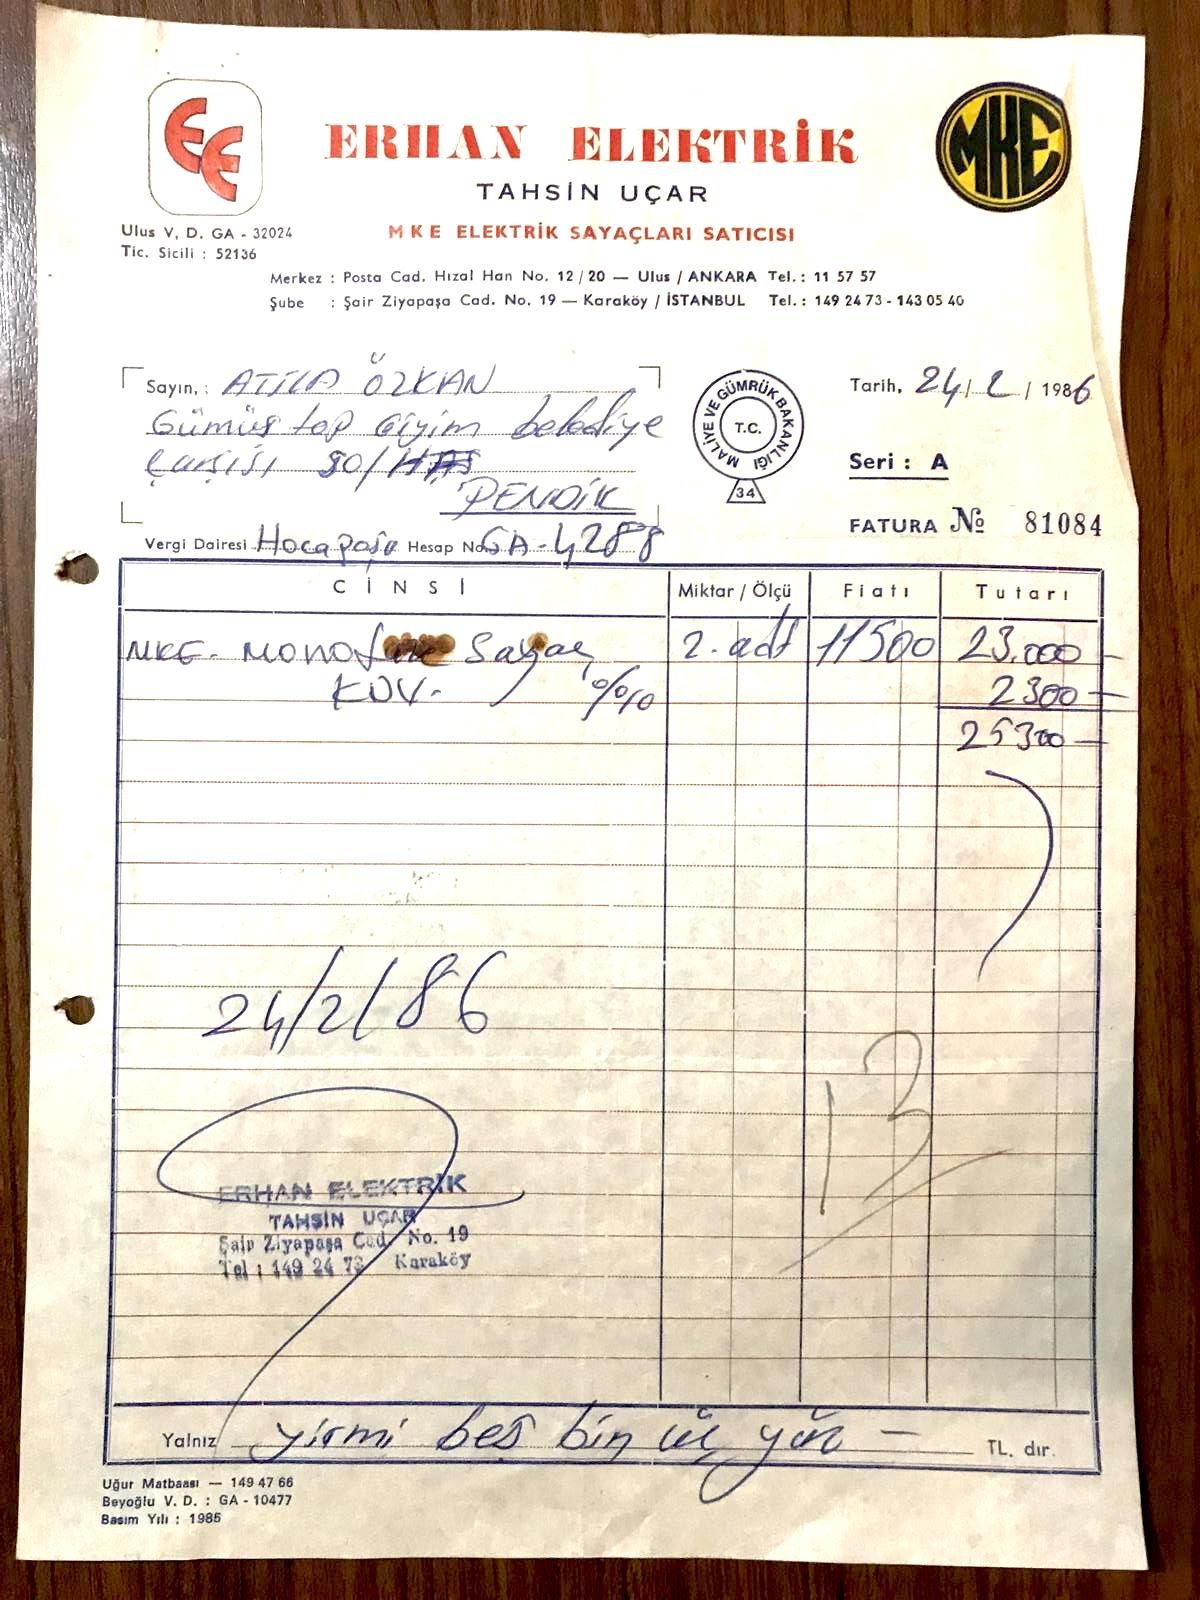 EE
ERHAN ELEKTRİK
MKE
TAHSİN UÇAR
Ulus V. D. GA - 32024
MKE ELEKTRİK SAYAÇLARI SATICISI
Tic. Sicili : 52136
Merkez : Posta Cad. Hızal Han No. 12/20 — Ulus / ANKARA Tel. : 11 57 57
Şube : Şair Ziyapaşa Cad. No. 19 — Karaköy / İSTANBUL Tel. : 149 24 73 - 143 05 40
Sayın, : ATİLA ÖZKAN
Gümüş top Giyim belediye
Çarşısı 50/
PENDİK
MALİYE VE GÜMRÜK BAKANLIĞI
T.C.
34
Tarih, 24/2/1986
Seri : A
FATURA No 81084
Vergi Dairesi Hocapaşa Hesap No. GA-4288
CİNSİ Miktar / Ölçü Fiatı Tutarı
MKE. Monofaze Sayaç 2. adt 11500 23.000—
KDV. %10 2300—
25300—
24/2/86
13
ERHAN ELEKTRİK
TAHSİN UÇAR
Şair Ziyapaşa Cad. No. 19
Tel : 149 24 73 Karaköy
Yalnız yirmi beş bin üç yüz — TL. dır.
Uğur Matbaası — 149 47 66
Beyoğlu V. D. : GA - 10477
Basım Yılı : 1985